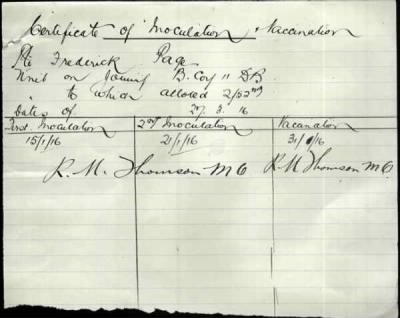 Certificate of Inoculation & Vaccination
Pte Frederick Page
Unit on Joining B. Coy 11 DB
" to which alloted 2/53rd
Dates of 27. 3. 16
First Inoculation 2nd Inoculation Vacanation
15/1/16 21/1/16 31/1/16
R. M. Thomson M C R M Thomson M C